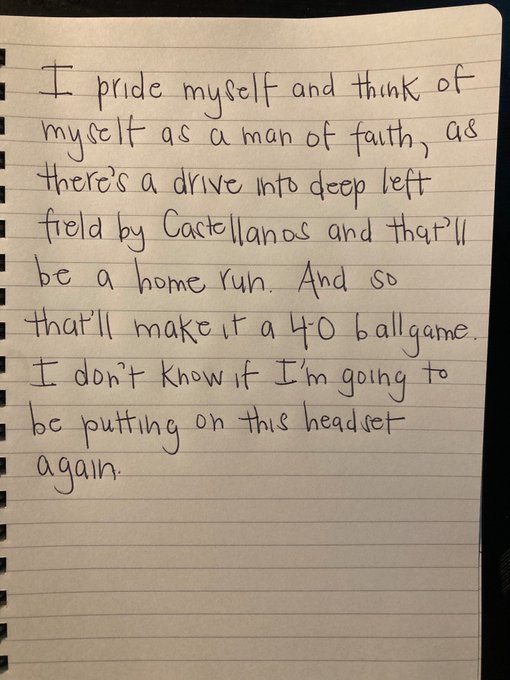 I pride myself and think of
myself as a man of faith, as
there's a drive into deep left
field by Castellanos and that'll
be a home run. And so
that'll make it a 4-0 ballgame.
I don't know if I'm going to
be putting on this headset
again.